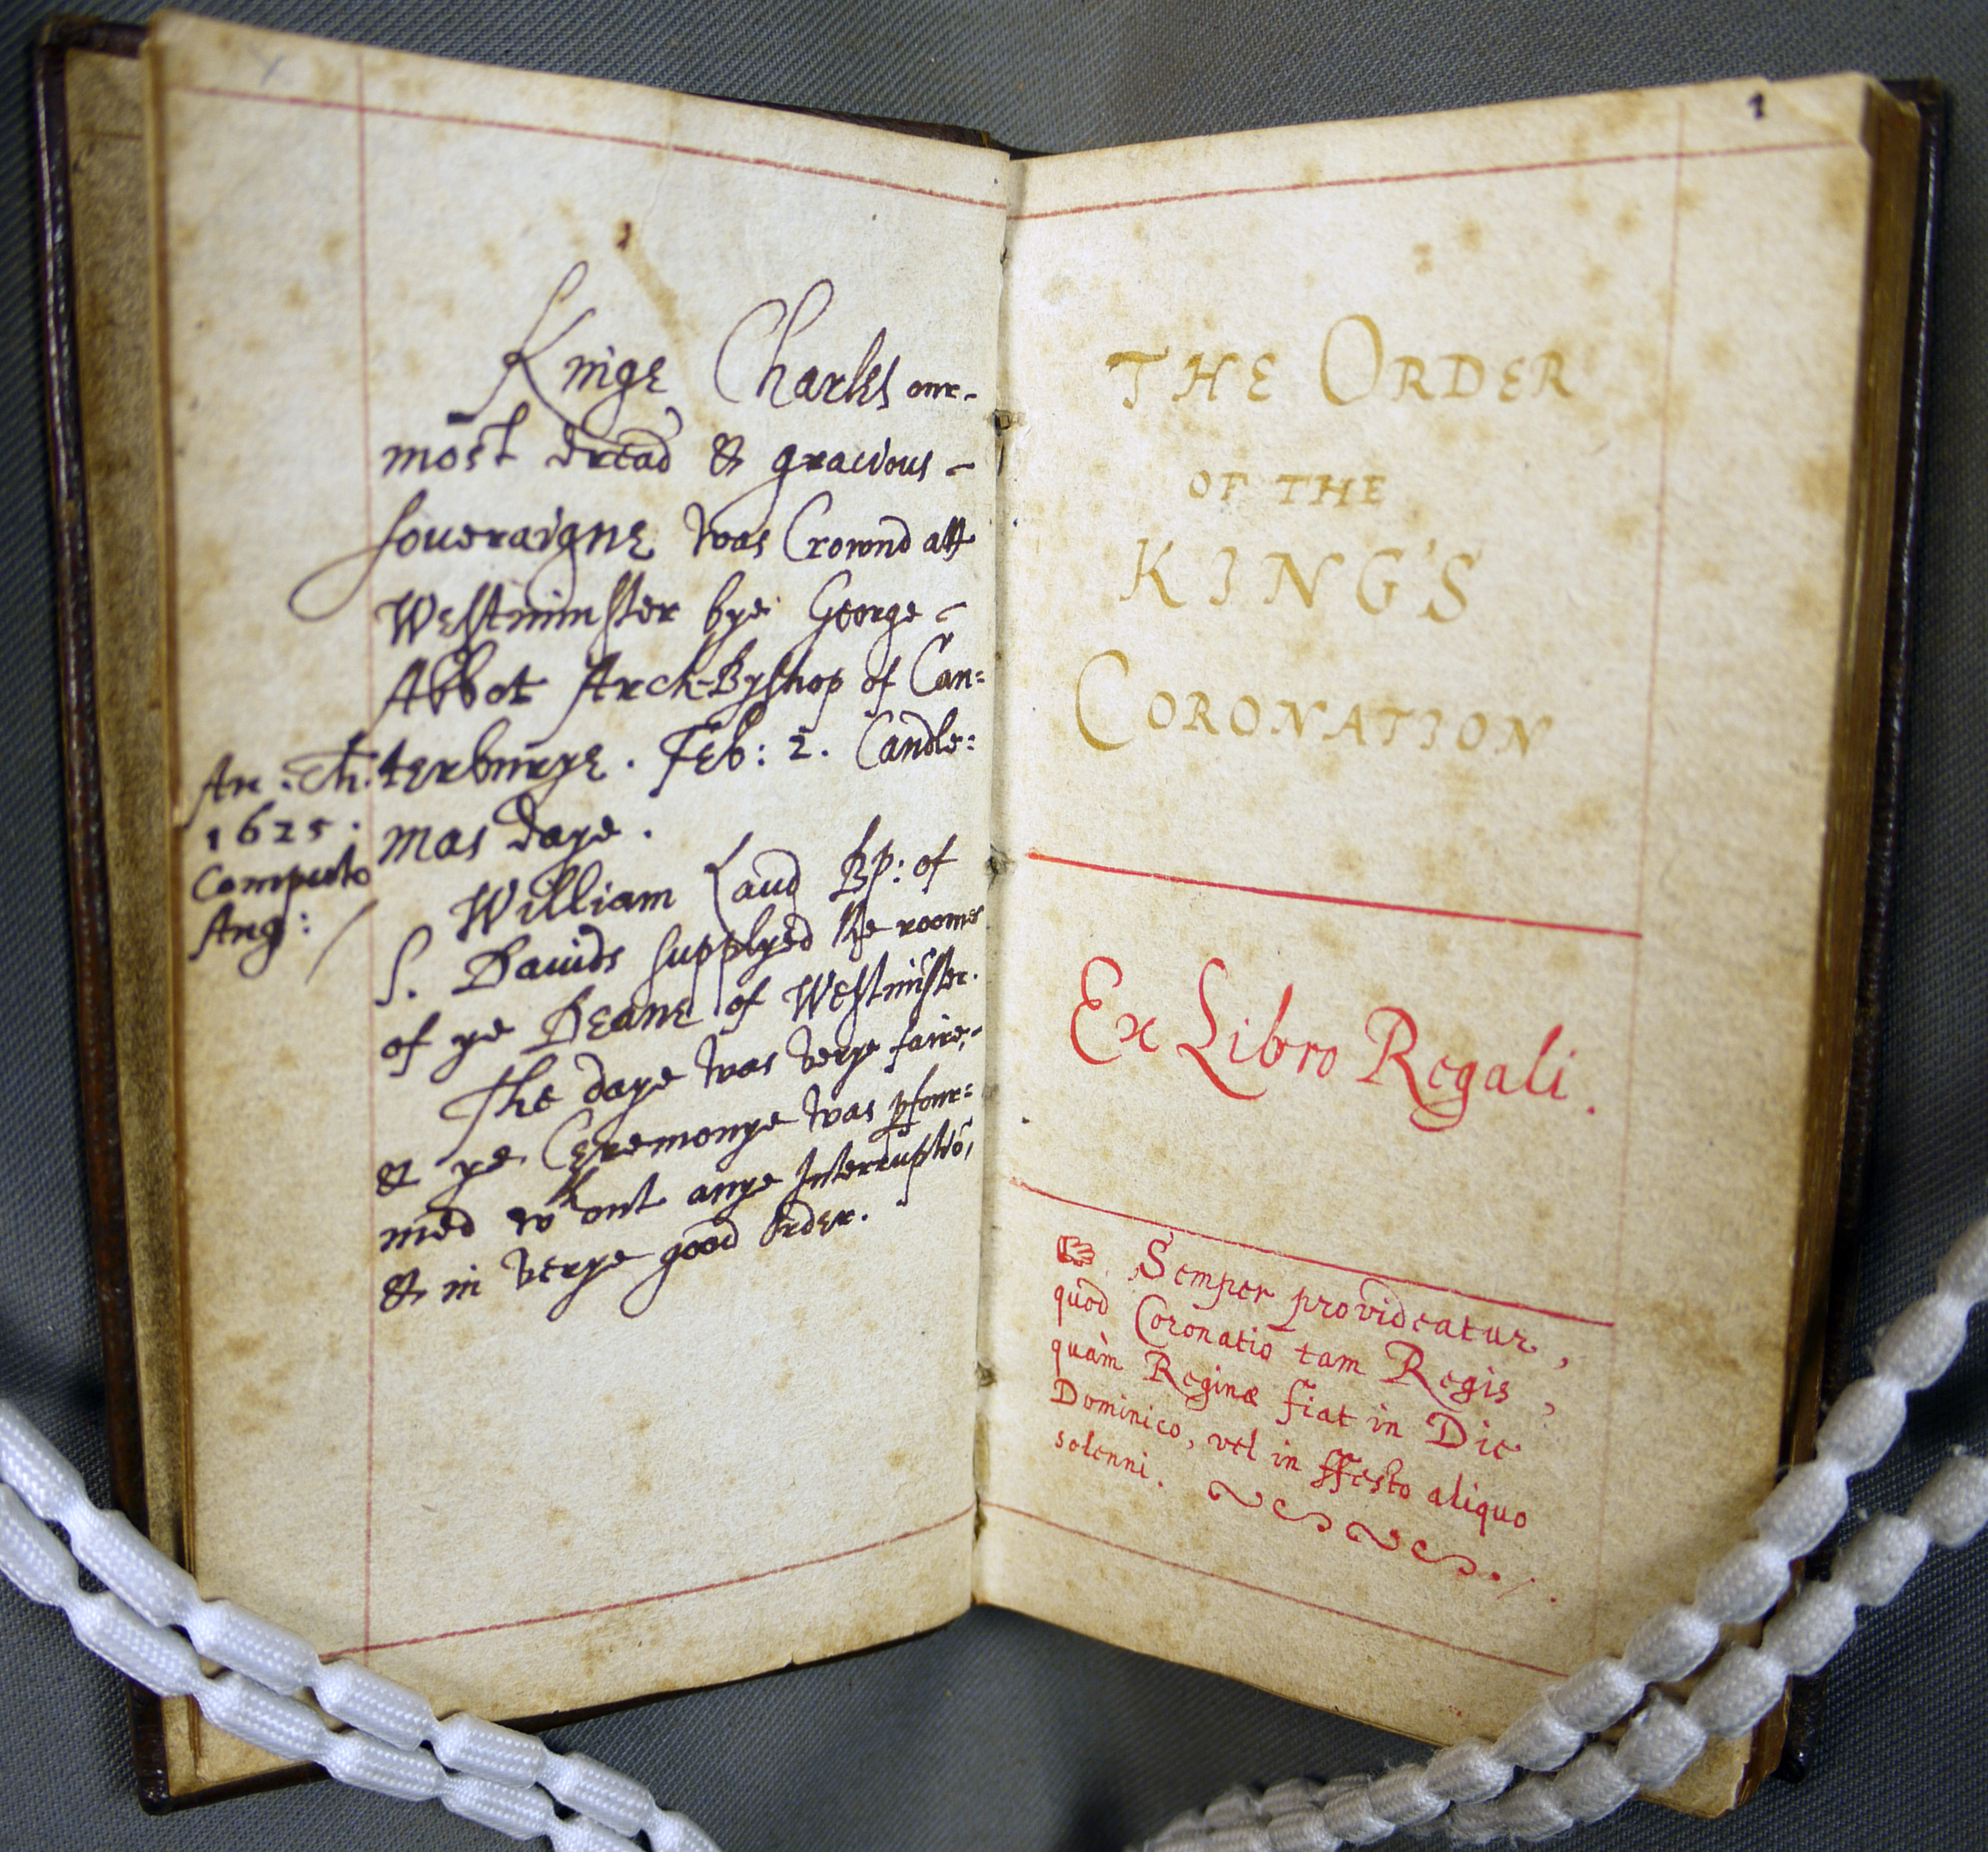 Kinge Charles our-
most dread & gracious -
soueraigne was Crownd att
Westminster bye George -
Abbot Arch-Byshop of Can=
terburye. Feb: 2. Candle=
mas daye.
An: Ch:
1625.
Computo
Ang: /
William Laud Bp: of
S. Dauids supplyed the roome
of ye Deane of Westminster.
The daye was verye faire,-
& ye Ceremonye was pfour=
med wthout anye Interruptiō,
& in verye good Order.
1
THE ORDER
OF THE
KING'S
CORONATION
Ex Libro Regali.
☞. Semper provideatur,
quod Coronatio tam Regis,
quàm Reginæ fiat in Die
Dominico, vel in ffesto aliquo
solenni.